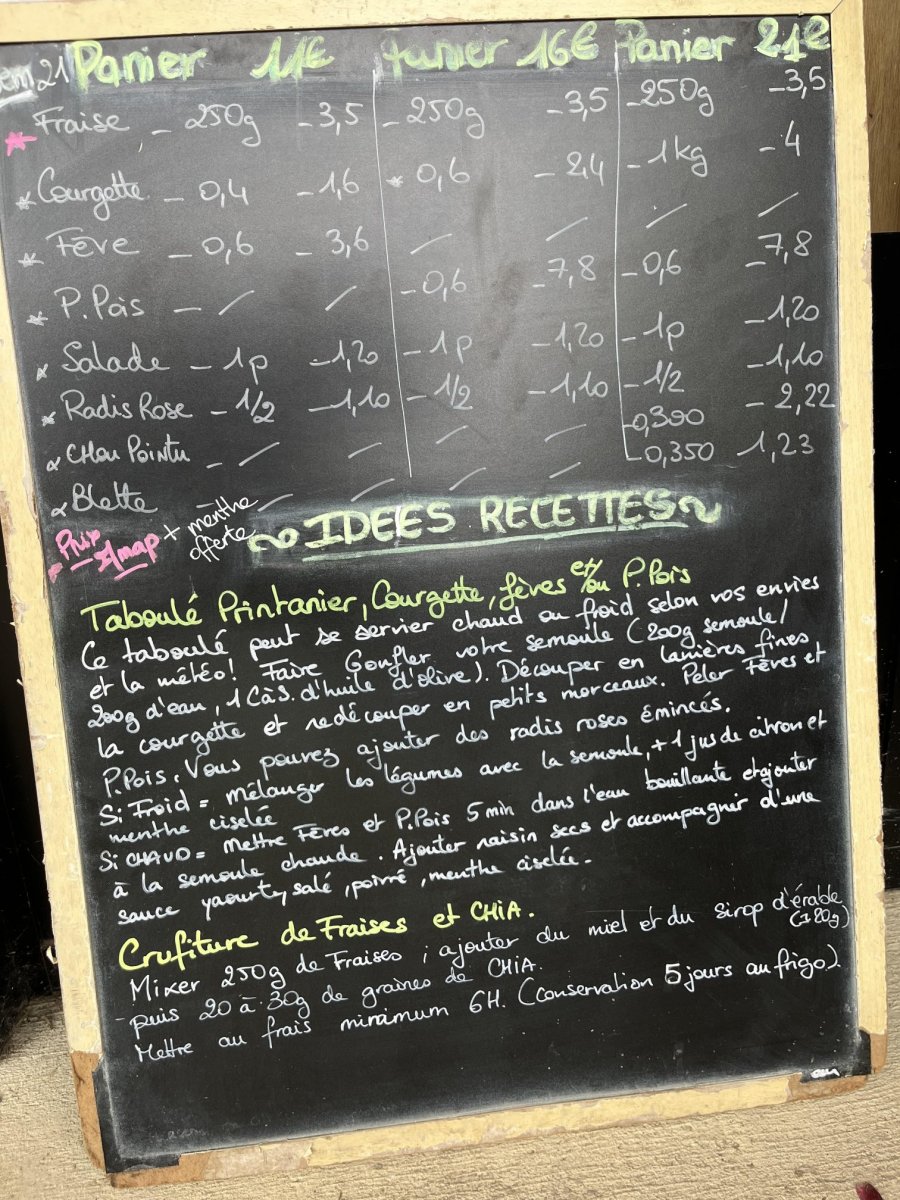 Sem 21 Panier 11€ Panier 16€ Panier 21€
* Fraise - 250g - 3,5 - 250g - 3,5 - 250g - 3,5
* Courgette - 0,4 - 1,6 * 0,6 - 2,4 - 1kg - 4
* Fève - 0,6 - 3,6 / / / /
* P.Pois - / / - 0,6 - 7,8 - 0,6 - 7,8
* Salade - 1p - 1,20 - 1p - 1,20 - 1p - 1,20
* Radis Rose - 1/2 - 1,10 - 1/2 - 1,10 - 1/2 - 1,10
* CHou Pointu - / / / / - 0,390 - 2,22
* Blette / / / / - 0,350 1,23
* Prix Amap + menthe offerte
~ IDEES RECETTES ~
Taboulé Printanier, Courgette, fèves et/ou P.Pois
Ce taboulé peut se servier chaud ou froid selon vos envies
et la météo! Faire Gonfler votre semoule (200g semoule/
200g d'eau, 1 CàS. d'huile d'olive). Découper en lamières fines
la courgette et redécouper en petits morceaux. Peler Fèves et
P.Pois. Vous pouvez ajouter des radis roses émincés.
Si Froid = mélanger les légumes avec la semoule, + 1 jus de citron et
menthe ciselée
Si CHAUD = Mettre Fèves et P.Pois 5 min dans l'eau bouillante et ajouter
à la semoule chaude. Ajouter raisin secs et accompagner d'une
sauce yaourt, salé, poivré, menthe ciselée.
Crufiture de Fraises et CHiA.
Mixer 250g de Fraises ; ajouter du miel et du sirop d'érable
(± 80g)
- puis 20 à 30g de graines de CHiA.
Mettre au frais minimum 6H. (Conservation 5 jours au frigo).